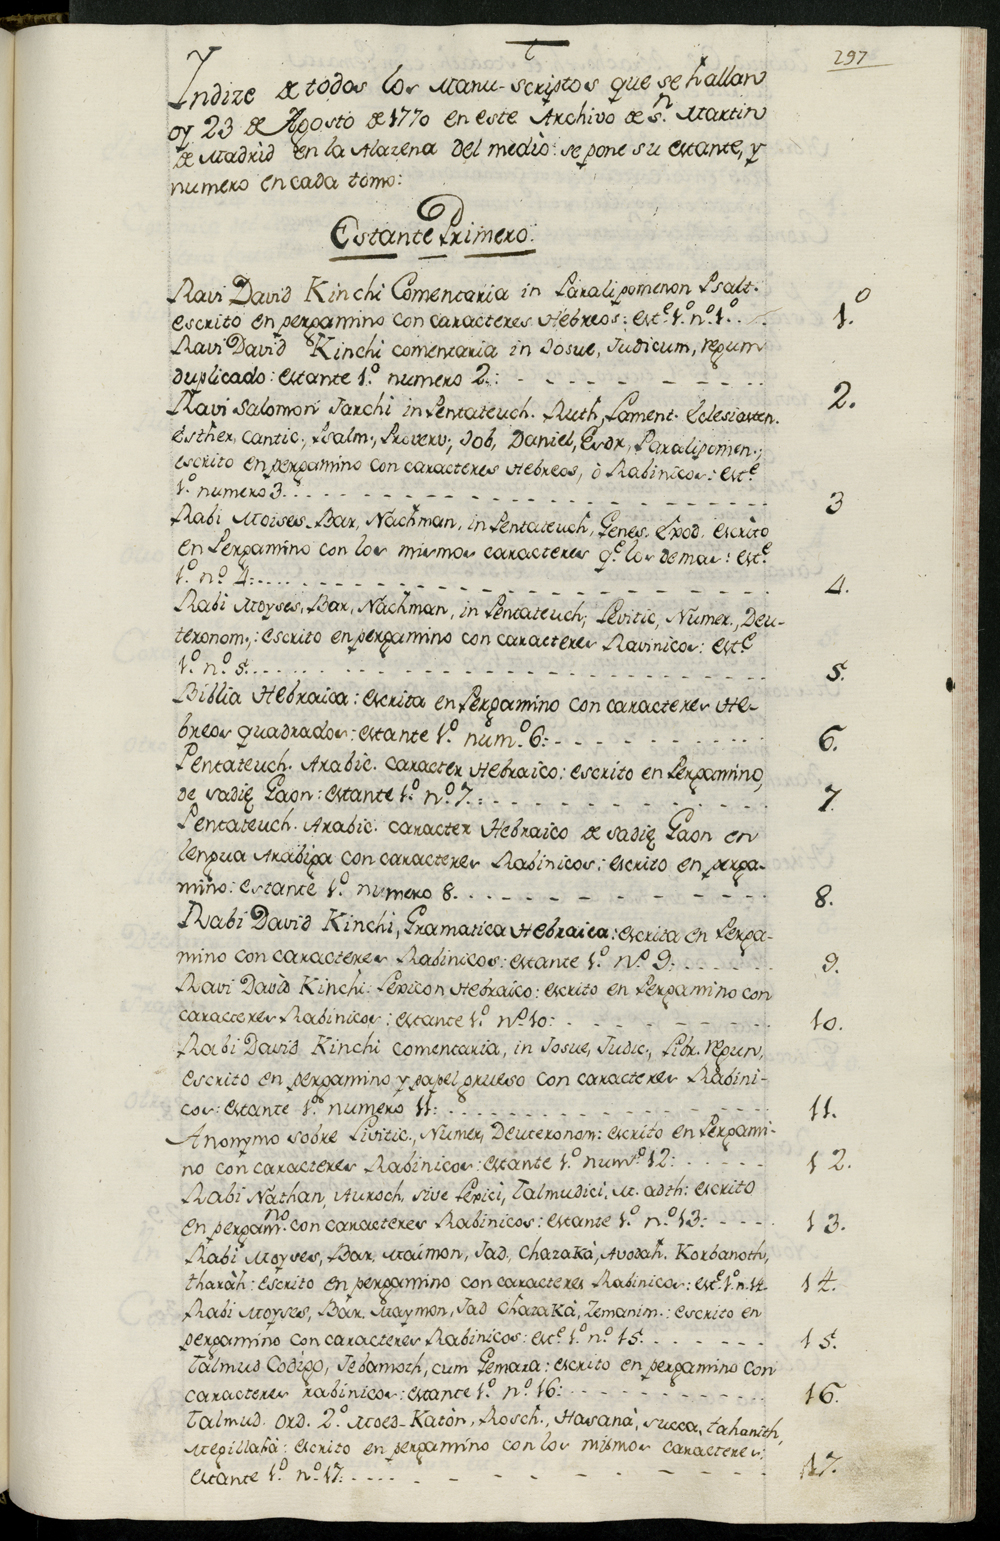 t
297
Yndize de todos los Manu-scriptos que se hallan
oy 23 de Agosto de 1770 en este Archivo de Sn. Martin
de Madrid en la Alazena del medio: se pone su estante, y
numero en cada tomo:
Estante Primero:
Ravi David Kinchi Comentaria in Paralipomenon Psalt.
escrito en pergamino con caracteres Hebreos: este. 1º. nº. 1º. 1.º
Ravi David Kinchi comentaria in Josue, Judicum, regum
duplicado: estante 1º. numero 2: 2.
Ravi Salomon Jarchi in Pentateuch. Ruth, Lament. Eclesiasten.
Esther, Cantic., Psalm., Proverv., Job, Daniel, Esdr, Paralipomen.,
escrito en pergamino con caracteres Hebreos, ò Rabinicos: este.
1º. numero 3. 3
Rabi Moises Bar, Nachman, in Pentateuch, Genes. Exod. escrito
en Pergamino con los mismos caracteres qe. los demas: este.
1º. nº. 4: 4.
Rabi Moyses, Bar, Nachman, in Pentateuch, Levitic, Numer., Deu-
teronom.: escrito en pergamino con caracteres Ravinicos: este.
1º. nº. 5. 5.
Biblia Hebraica: escrita en Pergamino con caracteres He-
breos quadrados: estante 1º. numº. 6: 6.
Pentateuch. Arabic. caracter Hebraico: escrito en Pergamino,
de Sadię Gaon: estante 1º. nº. 7.: 7.
Pentateuch. Arabic. caracter Hebraico de Sadię Gaon en
lengua Arabiga con caracteres Rabinicos: escrito en perga-
mino: estante 1º. numero 8. 8.
Rabi David Kinchi, Gramatica Hebraica: escrita en Perga-
mino con caracteres Rabinicos: estante 1º. nº. 9: 9.
Ravi David Kinchi: Lexicon Hebraico: escrito en Pergamino con
caracteres Rabinicos: estante 1º. nº. 10: 10.
Rabi David Kinchi comentaria, in Josue, Judic., Libr. regun,
escrito en pergamino y papel grueso con caracteres Rabini-
cos: estante 1º. numero 11: 11.
Anonymo sobre Livitic., Numer, Deuteronom: escrito en Pergami-
no con caracteres Rabinicos: estante 1º. numº. 12: 12.
Rabi Nathan, Auroch, sive Lexici, Talmudici, M. adth: escrito
en pergamno. con caracteres Rabinicos: estante 1º. nº. 13: 13.
Rabi Moyses, Bar. Maimon, Jad, Chazakà, Avodah. Korbanoth,
tharàh: escrito en pergamino con caracteres Rabinicos: este. 1º. n. 14. 14.
Rabi Moyses, Bar. Maymon, Jad Chazakà, Zemanim.: escrito en
pergamino con caracteres Rabinicos: este. 1º. nº. 15. 15.
Talmud Codigo, Jebamoth, cum Gemara: escrito en pergamino con
caracteres rabinicos: estante 1º. nº. 16: 16.
Talmud. Ord. 2º. Moed-Katòn, Rosch., Hasanà, Succa, tahanith,
Megillahà: escrito en pergamino con los mismos caracteres:
estante 1º. nº. 17: 17.